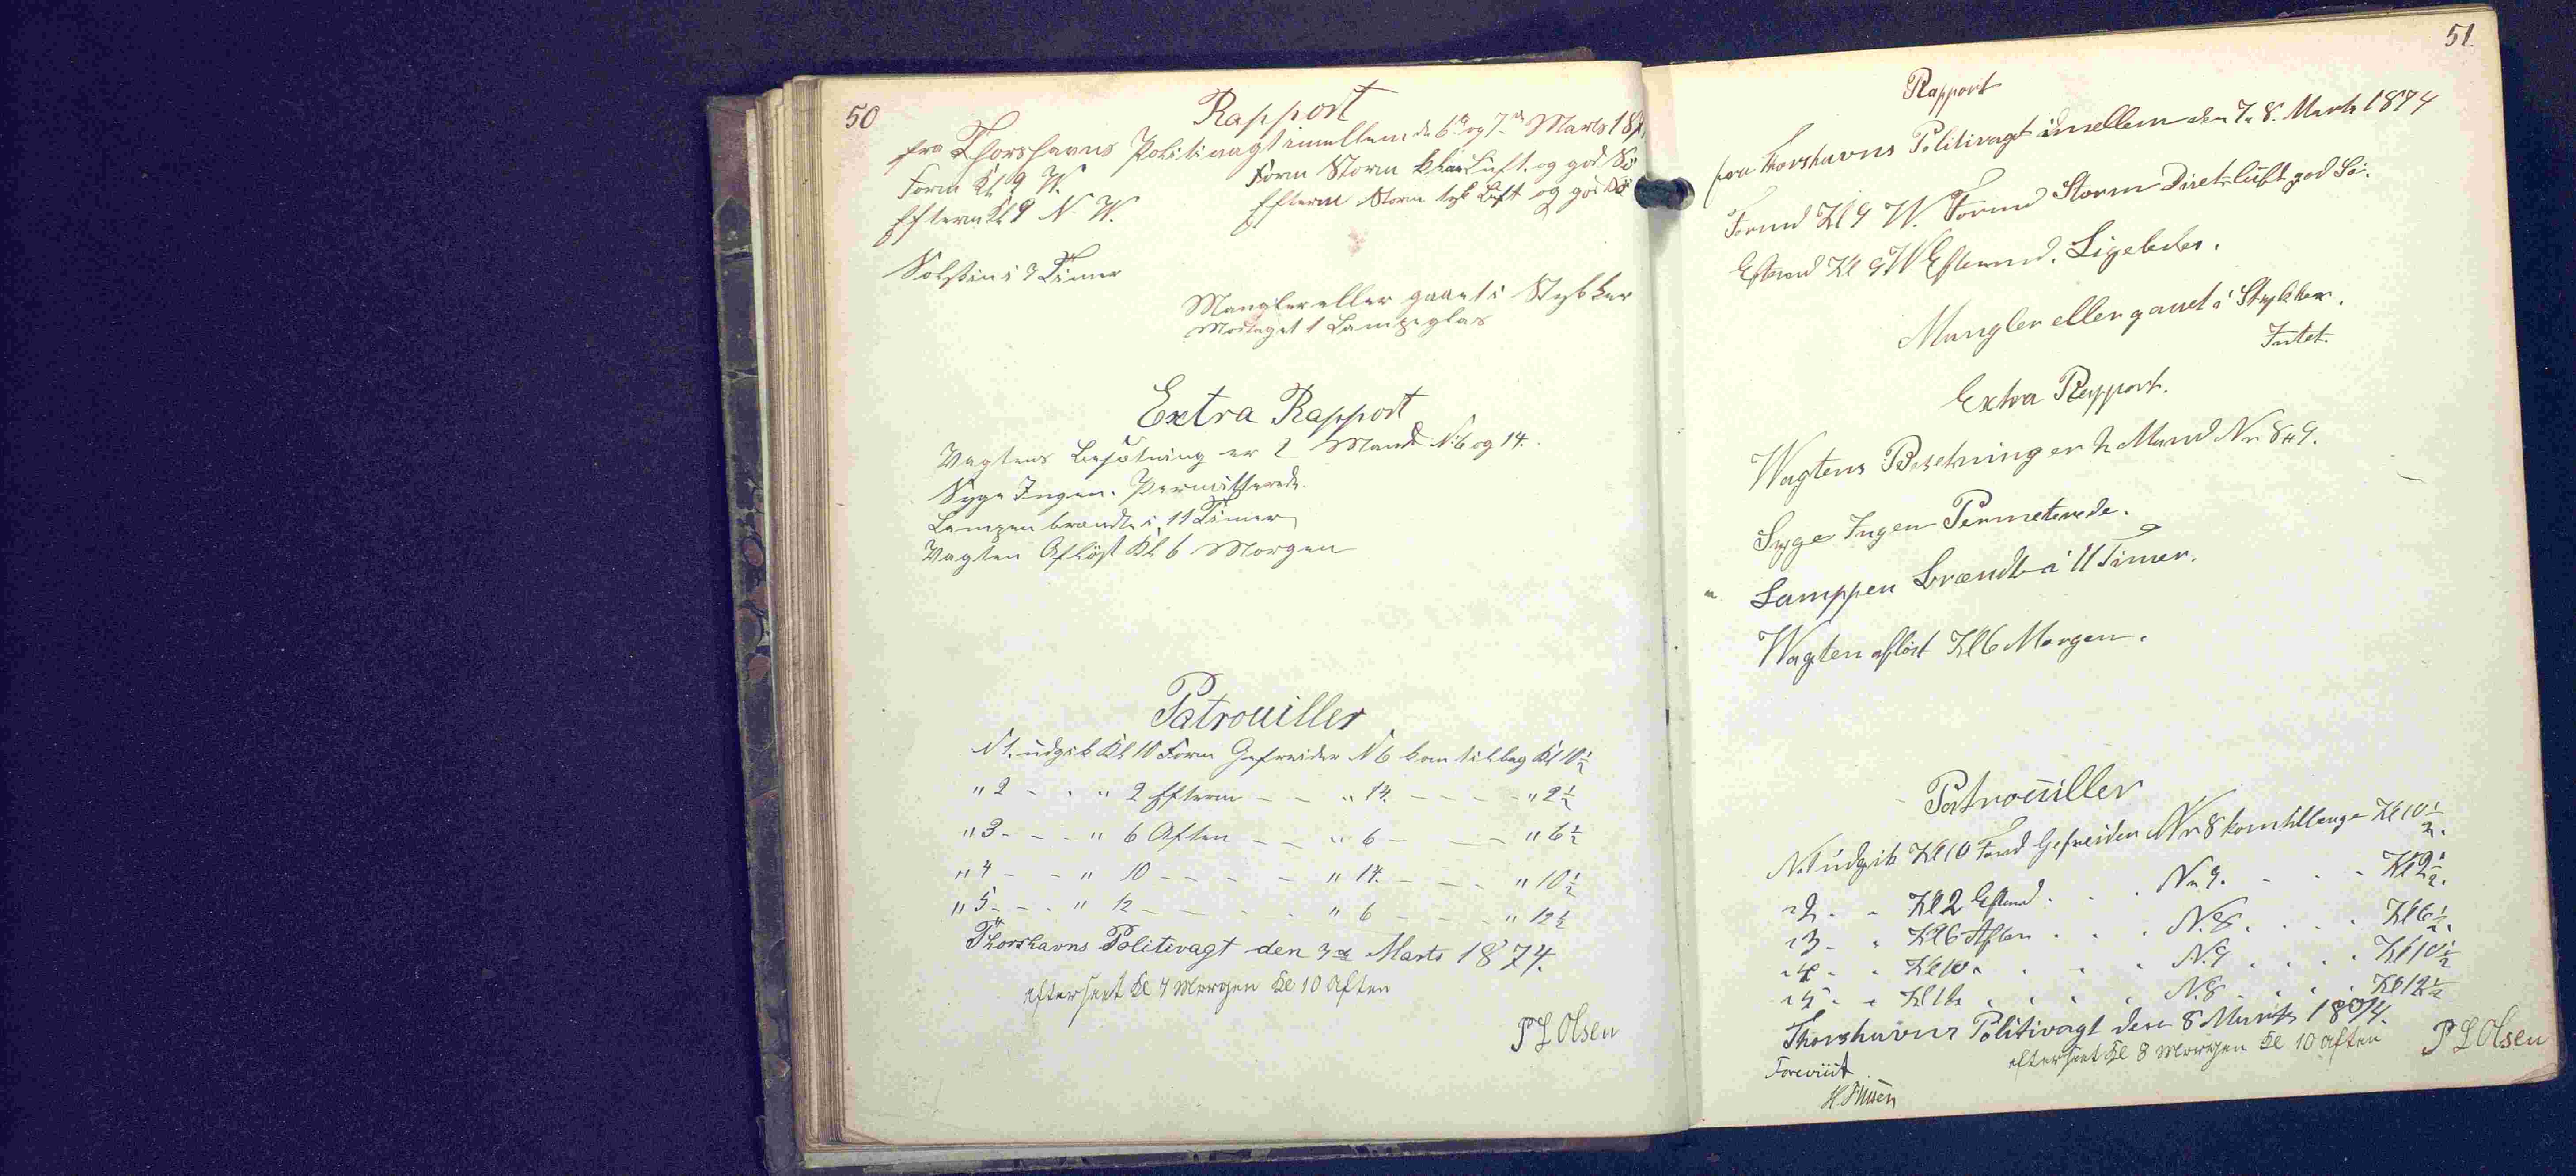 50
Rapport
fra Thorshavns Politivagt imellem d. 6te og 7de Marts 18
Form Kl 9 W. Form Storm klar Luft og god Sö
Efterm Kl 9 N. W. Efterm Storm tyk Luft og god Sö
Solskin i 7 Timer
Mangler eller gaaet i Stykker
Modtaget 1 Lampeglas
Extra Rapport
Vagtens Besætning er 2 Mand No 6 og 14.
Syge Ingen. Permitterede.
Lampen brændte i 11 Timer
Vagten Aflöst Kl 6 Morgen
Patrouiller
N 1. udgik Kl 10 Form Gefreider N 6 kom tilbag Kl 10½
" 2 - - " 2 Efterm - - " 14. - - - - " 2½
" 3 - - - " 6 Aften - - " 6 - - - " 6½
" 4 - - " 10 - - - - " 14. - - - " 10½
" 5 - - - " 12 - - - - " 6 - - - " 12½
Thorshavns Politivagt den 7de Marts 1874.
efterseet Kl 4 Morgen Kl 10 Aften
P L Olsen
51.
Rapport
fra Thorshavns Politivagt imellem den 7 & 8. Marts 1874
Formd Kl 9 W. Formd Storm luft god Sö.
Eftermd Kl 9 W Eftermd. Ligeledes.
Mangler eller gauet i Stykker.
Intet.
Extra Rapport.
Wagtens Besetning er 2 Mand Nr 8 & 9.
Syge Ingen Permeterede.
Lamppen Brændte i 11 Timer.
Wagten aflöst Kl 6 Morgen.
Patrouiller
N.1 udgik Kl 10 Fomd Gefreiden Nr 8 kom tilbage Kl 10½.
" 2. - Kl 2 Eftmd . . . Nr 9. . . . Kl 2½.
" 3 - " Kl 6 Aften . . . N. 8. . . . Kl 6½.
" 4 - " Kl 10 . . . . N. 9 . . . . Kl 10½
" 5 - " Kl 12 . . . . N. 8 . . . . Kl 12½
Thorshavns Politivagt den 8 Marts 1874.
efterseet Kl 8 Morgen Kl 10 Aften P L Olsen
Foreviist